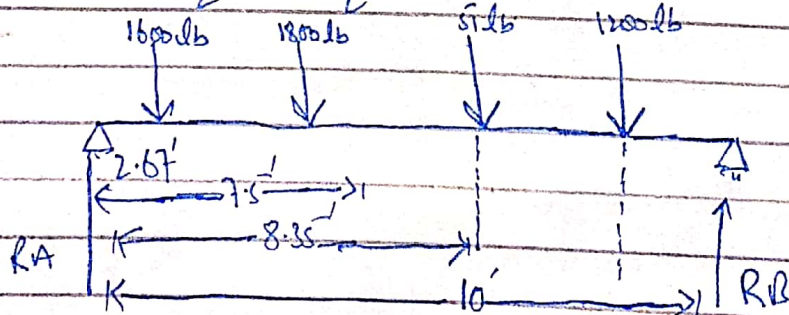 1600lb 1800lb 51lb 1200lb
2.67'
7.5'
8.35'
RA 10' RB